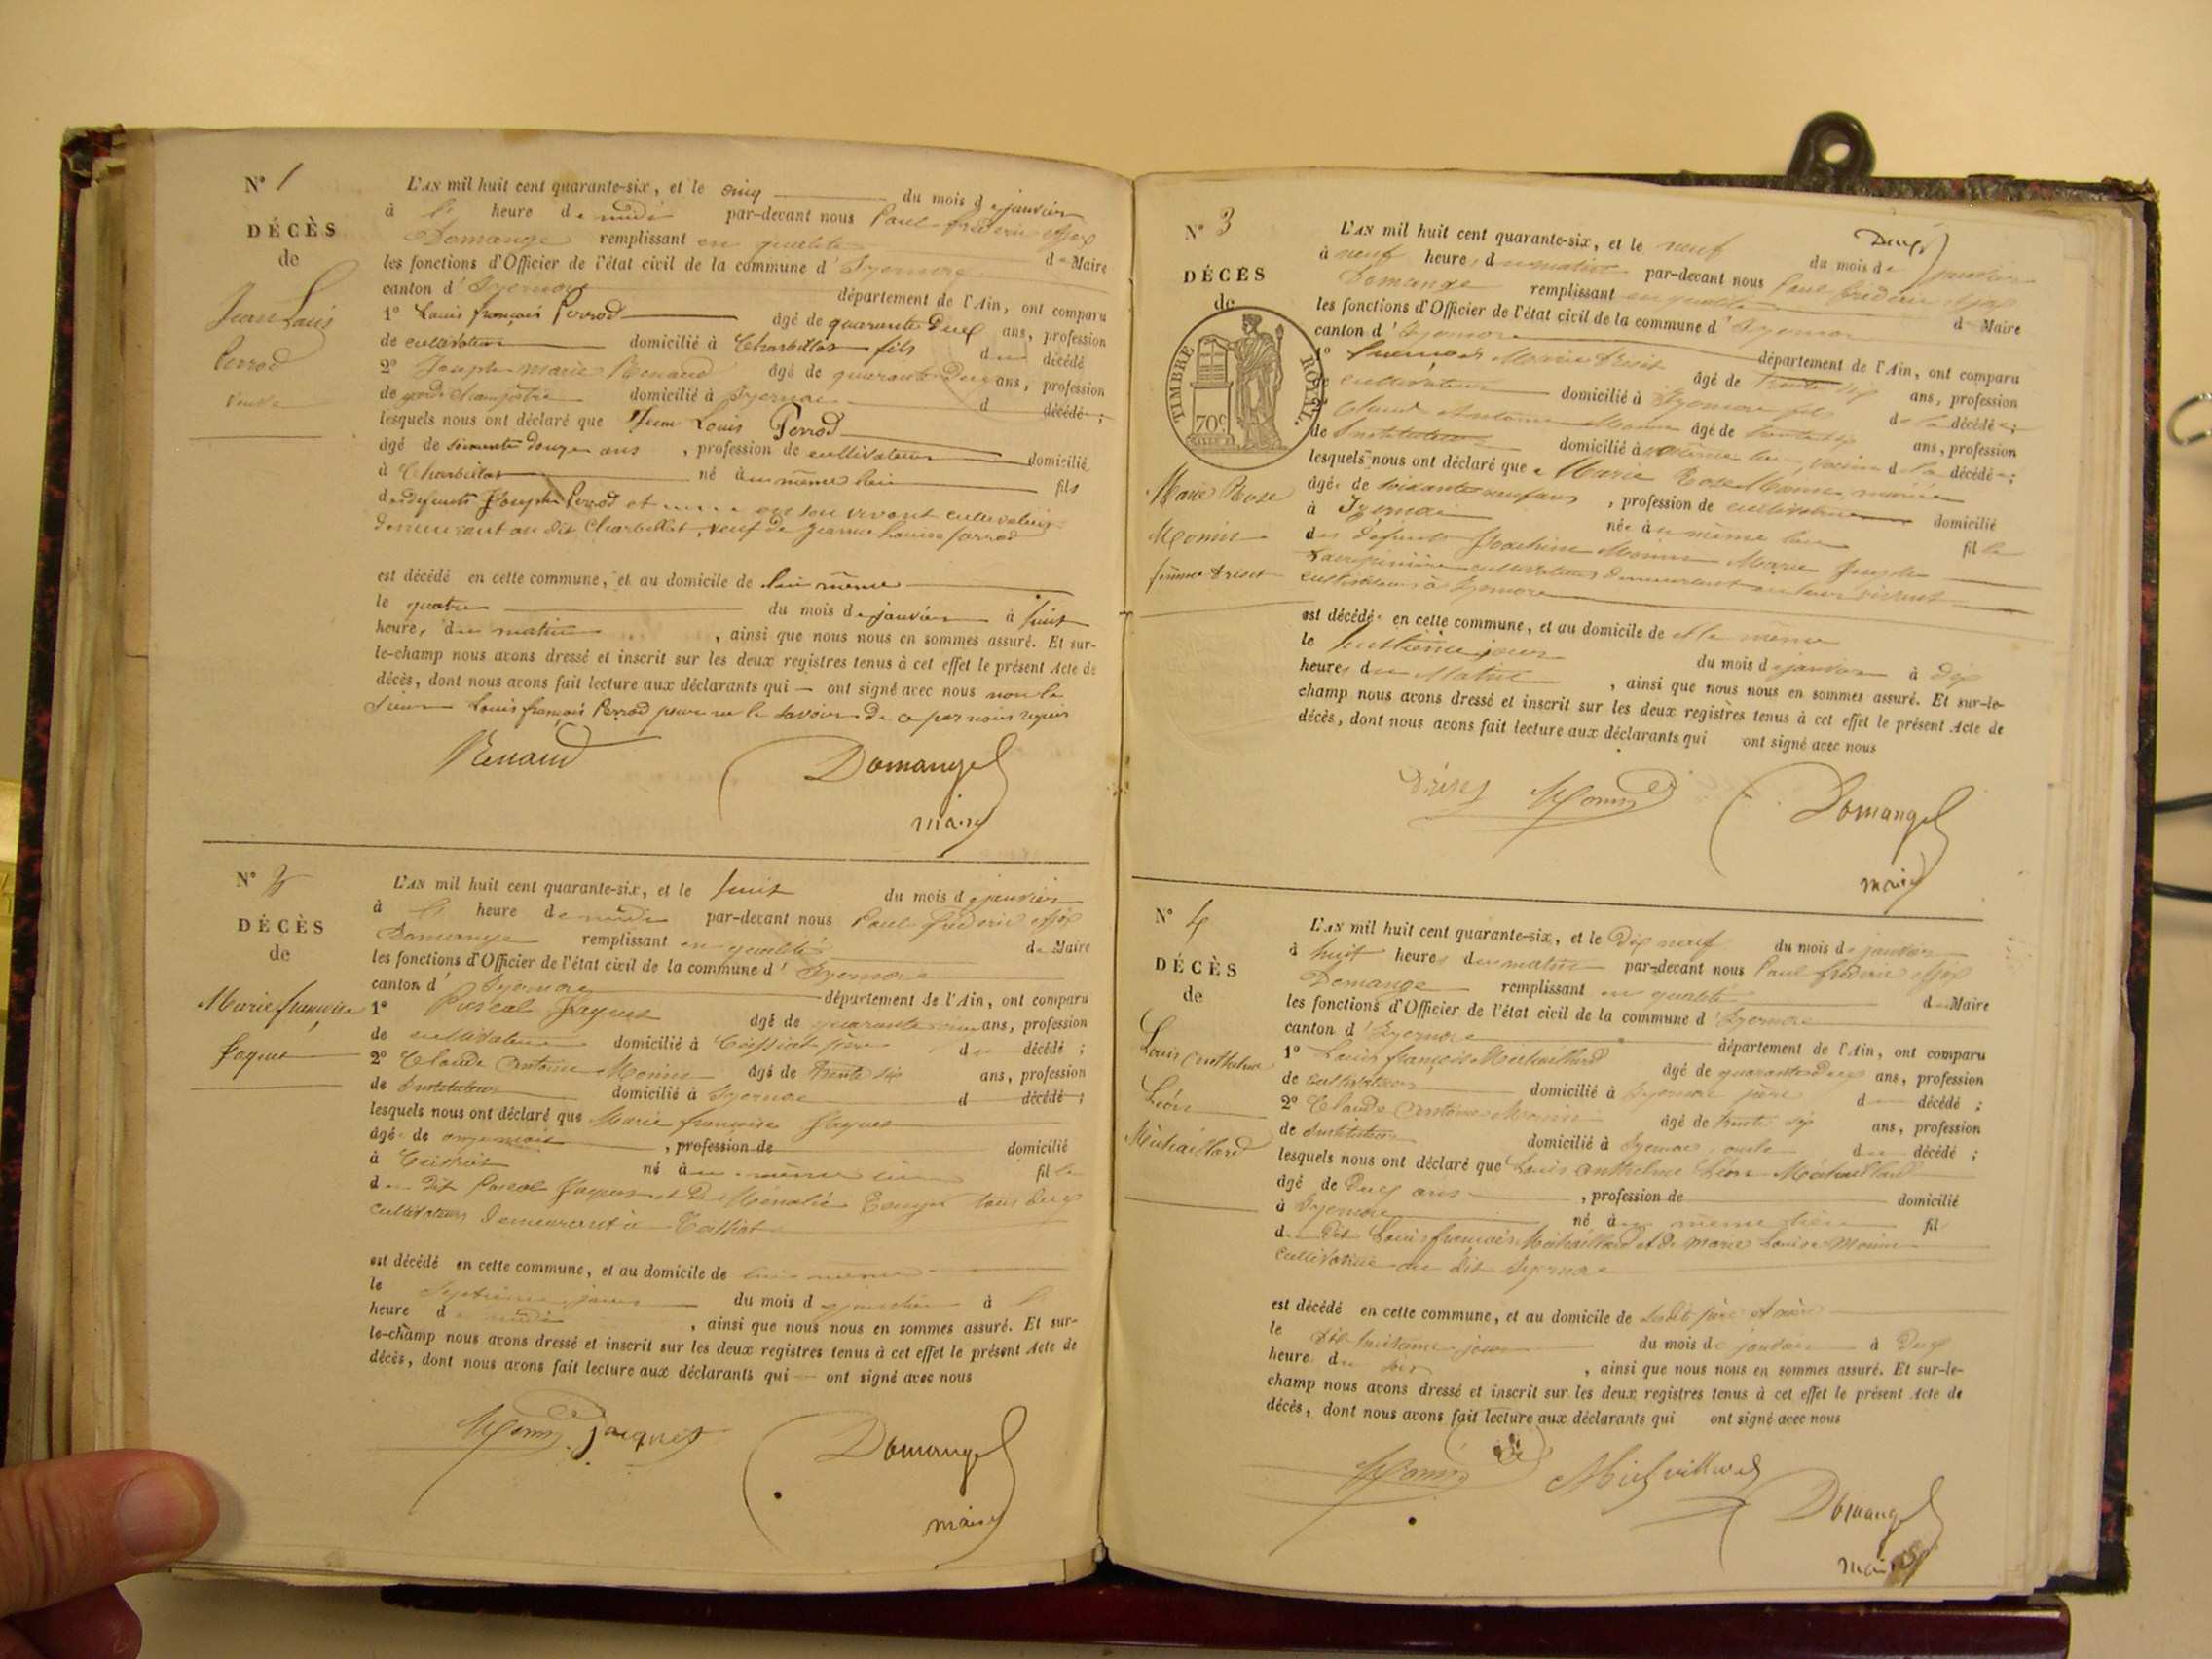 N° 1
DÉCÈS
de
Jean Louis
Perrod
L'AN mil huit cent quarante-six, et le cinq du mois de janvier
à heure de midi par-devant nous Paul frédéric
Domange remplissant en qualité de Maire
les fonctions d'Officier de l'état civil de la commune d' Izernore
canton d' Izernore département de l'Ain, ont comparu
1° Louis françois Perrod âgé de quarante deux ans, profession
de cultivateur domicilié à Charbillat fils du décédé
2° Joseph marie Renaud âgé de quarante deux ans, profession
de garde champêtre domicilié à Izernore d décédé ;
lesquels nous ont déclaré que Jean Louis Perrod
âgé de soixante douze ans , profession de cultivateur domicilié
à Charbillat né à au même lieu fils
de defunts Joseph Perrod et en leur vivant cultivateurs
demeurant au dit Charbillat, veuf de Jeanne Louise
est décédé en cette commune, et au domicile de lui même
le quatre du mois de janvier à huit
heure, du matin , ainsi que nous nous en sommes assuré. Et sur-
le-champ nous avons dressé et inscrit sur les deux registres tenus à cet effet le présent Acte de
décès, dont nous avons fait lecture aux déclarants qui — ont signé avec nous non le
sieur Louis françois Perrod pour ne le savoir de ce par nous requis
Renaud Domange
maire
N° 2
DÉCÈS
de
Marie françoise
Jaquet
L'AN mil huit cent quarante-six, et le huit du mois de janvier
à heure de midi par-devant nous Paul frédéric
Domange remplissant en qualité de Maire
les fonctions d'Officier de l'état civil de la commune d' Izernore
canton d' Izernore département de l'Ain, ont comparu
1° Pascal Jaquet âgé de quarante ans, profession
de cultivateur domicilié à Ceissiat père du décédé ;
2° Claude Antoine Monin âgé de trente six ans, profession
de Instituteur domicilié à Izernore d décédé ;
lesquels nous ont déclaré que Marie françoise Jaquet
âgé de onze mois , profession de domicilié
à Ceissiat né à au même lieu fille
du dit Pascal Jaquet et de tous deux
cultivateurs demeurant à Ceissiat
est décédé en cette commune, et au domicile de lui même
le septième jour du mois de janvier à
heure de midi , ainsi que nous nous en sommes assuré. Et sur-
le-champ nous avons dressé et inscrit sur les deux registres tenus à cet effet le présent Acte de
décès, dont nous avons fait lecture aux déclarants qui — ont signé avec nous
Monin jaquet Domange
maire
N° 3
DÉCÈS
de
TIMBRE ROYAL
70c
Marie Rose
Monin
femme
L'AN mil huit cent quarante-six, et le neuf du mois de janvier
à neuf heures du matin par-devant nous Paul frédéric
Domange remplissant en qualité de Maire
les fonctions d'Officier de l'état civil de la commune d' Izernore
canton d' Izernore département de l'Ain, ont comparu
1° Marie âgé de trente six ans, profession
de cultivateur domicilié à Izernore fils de la décédée ;
2° Claude Antoine Monin âgé de trente six ans, profession
de Instituteur domicilié à même lieu, voisin de la décédée ;
lesquels nous ont déclaré que Marie Rose Monin
âgée de soixante neuf ans , profession de cultivatrice domicilié
à Izernore née à au même lieu fille
des défunts Joachim Monin Marie
cultivateurs demeurant en leur vivant
cultivateurs à Izernore
est décédée en cette commune, et au domicile de elle même
le huitième jour du mois de janvier à dix
heures du Matin , ainsi que nous nous en sommes assuré. Et sur-le-
champ nous avons dressé et inscrit sur les deux registres tenus à cet effet le présent Acte de
décès, dont nous avons fait lecture aux déclarants qui ont signé avec nous
Monin Domange
maire
N° 4
DÉCÈS
de
Louis Anthelme
Léon
Michaillard
L'AN mil huit cent quarante-six, et le dix neuf du mois de janvier
à huit heures du matin par-devant nous Paul frédéric
Domange remplissant en qualité de Maire
les fonctions d'Officier de l'état civil de la commune d' Izernore
canton d' Izernore département de l'Ain, ont comparu
1° Louis françois Michaillard âgé de quarante deux ans, profession
de cultivateur domicilié à Izernore père du décédé ;
2° Claude Antoine Monin âgé de trente six ans, profession
de Instituteur domicilié à Izernore, oncle du décédé ;
lesquels nous ont déclaré que Louis Anthelme Léon Michaillard
âgé de deux ans , profession de domicilié
à Izernore né à au même lieu fil
du dit Louis françois Michaillard et de marie Louise Monin
au dit Izernore
est décédé en cette commune, et au domicile de sesdits père et mère
le dix huitième jour du mois de janvier à deux
heure du soir , ainsi que nous nous en sommes assuré. Et sur-le-
champ nous avons dressé et inscrit sur les deux registres tenus à cet effet le présent Acte de
décès, dont nous avons fait lecture aux déclarants qui ont signé avec nous
Monin Michaillard Domange
maire